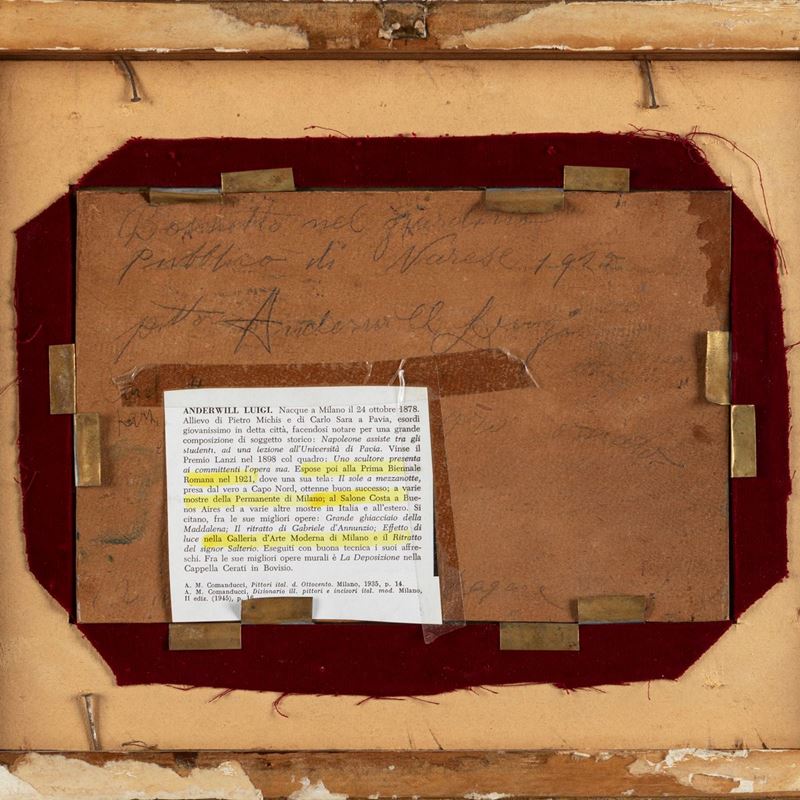 Bozzetto nel giardino
Pubblico di Varese 192
pittor Anderwill Luigi
ANDERWILL LUIGI. Nacque a Milano il 24 ottobre 1878.
Allievo di Pietro Michis e di Carlo Sara a Pavia, esordì
giovanissimo in detta città, facendosi notare per una grande
composizione di soggetto storico: Napoleone assiste tra gli
studenti, ad una lezione all'Università di Pavia. Vinse il
Premio Lanzi nel 1898 col quadro: Uno scultore presenta
ai committenti l'opera sua. Espose poi alla Prima Biennale
Romana nel 1921, dove una sua tela: Il sole a mezzanotte,
presa dal vero a Capo Nord, ottenne buon successo; a varie
mostre della Permanente di Milano; al Salone Costa a Bue-
nos Aires ed a varie altre mostre in Italia e all'estero. Si
citano, fra le sue migliori opere: Grande ghiacciaio della
Maddalena; Il ritratto di Gabriele d'Annunzio; Effetto di
luce nella Galleria d'Arte Moderna di Milano e il Ritratto
del signor Salterio. Eseguì con buona tecnica i suoi affre-
schi. Fra le sue migliori opere murali è La Deposizione nella
Cappella Cerati in Bovisio.
A. M. Comanducci, Pittori ital. d. Ottocento. Milano, 1935, p. 14.
A. M. Comanducci, Dizionario ill. pittori e incisori ital. mod. Milano,
II ediz. (1945), p.